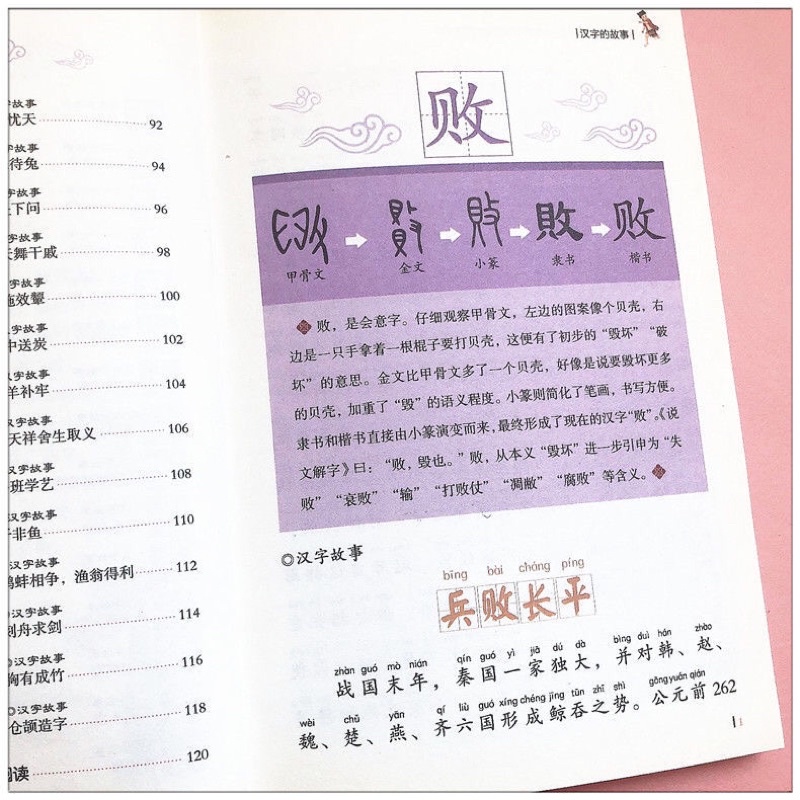 字故事
忧天 92
字故事
待兔 94
字故事
下问 96
字故事
舞干戚 98
效颦 100
字故事
中送炭 102
汉字故事
羊补牢 104
汉字故事
天祥舍生取义 106
汉字故事
班学艺 108
汉字故事
非鱼 110
汉字故事
蚌相争，渔翁得利 112
汉字故事
刻舟求剑 114
◎汉字故事
胸有成竹 116
◎汉字故事
仓颉造字 118
阅读 120
汉字的故事
败
甲骨文 金文 小篆 隶书 楷书
败 敗 敗 敗 败
败，是会意字。仔细观察甲骨文，左边的图案像个贝壳，右
边是一只手拿着一根棍子要打贝壳，这便有了初步的“毁坏”“破
坏”的意思。金文比甲骨文多了一个贝壳，好像是说要毁坏更多
的贝壳，加重了“毁”的语义程度。小篆则简化了笔画，书写方便。
隶书和楷书直接由小篆演变而来，最终形成了现在的汉字“败”。《说
文解字》曰：“败，毁也。”败，从本义“毁坏”进一步引申为“失
败”“衰败”“输”“打败仗”“凋敝”“腐败”等含义。
◎汉字故事
bīng bài cháng píng
兵败长平
zhàn guó mò nián qín guó yì jiā dú dà bìng duì hán zhào
战国末年，秦国一家独大，并对韩、赵、
wèi chǔ yān qí liù guó xíng chéng jīng tūn zhī shì gōng yuán qián
魏、楚、燕、齐六国形成鲸吞之势。公元前262
1